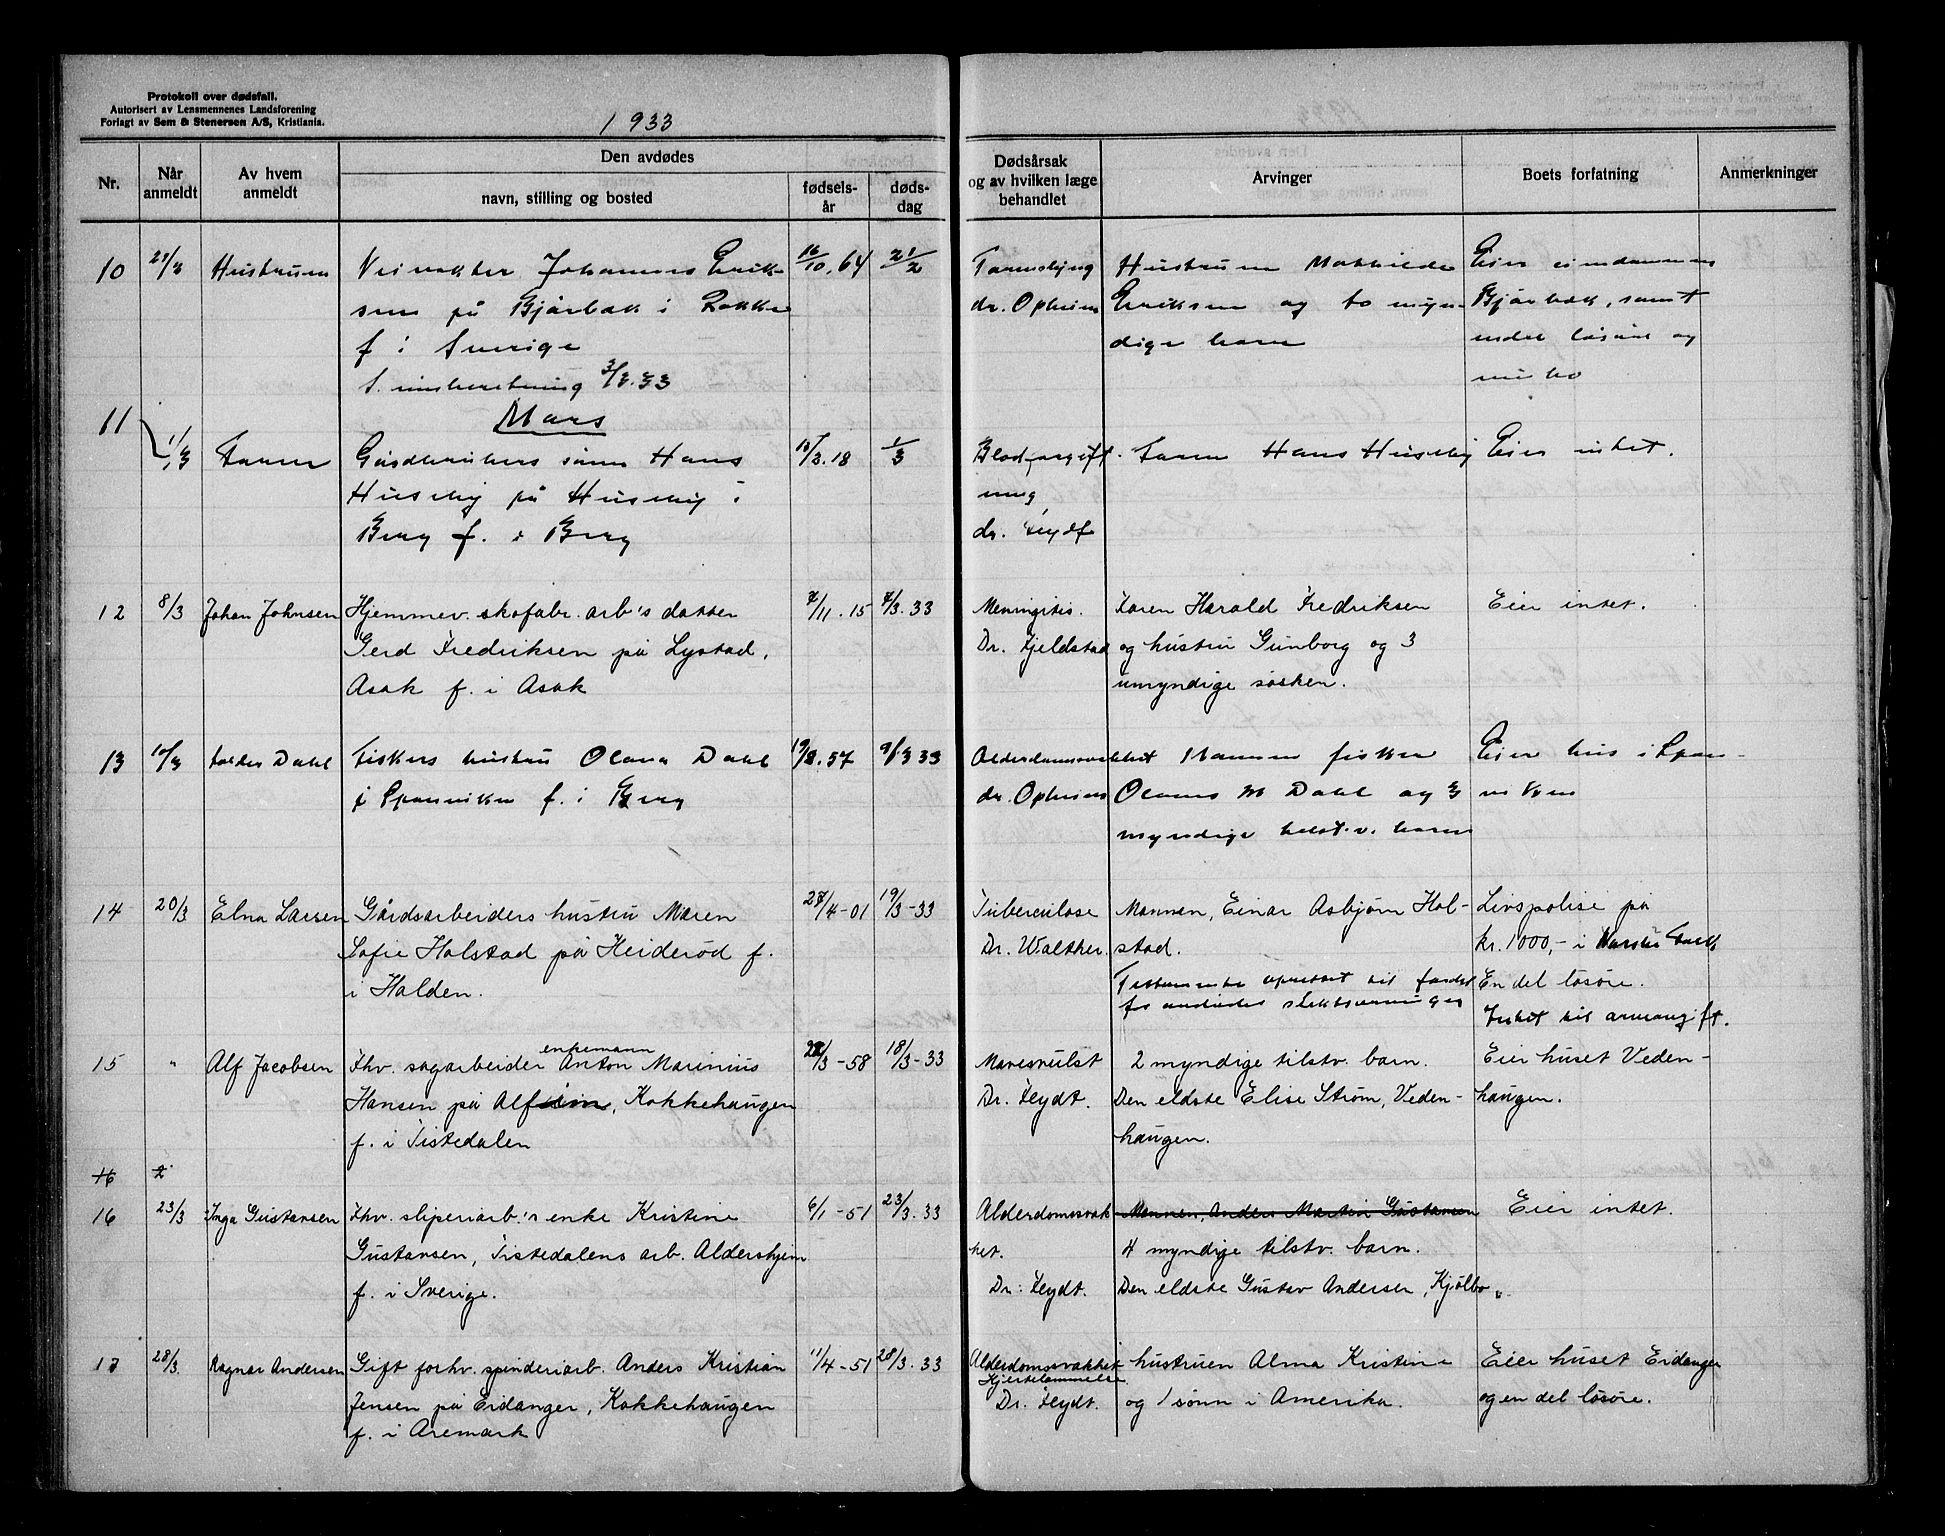 Protokoll over dødsfall.
Autorisert av Lensmennenes Landsforening
Forlagt av Sem & Stenersen A/S, Kristiania.
1933
Nr.
Når anmeldt
Av hvem anmeldt
Den avdødes
navn, stilling og bosted
fødsels-år
døds-dag
Dødsårsak og av hvilken læge behandlet
Arvinger
Boets forfatning
Anmerkninger
10 Hustruen Veivokter Johannes Erik- 16/10.64 21/2 dr. Opheim Hustruen Mathilde Eier eiendommen
sen på Bjørbæk i Eriksen og to myn- Bjørbæk, samt
f i Sverige dige barn endel løsøre og
innbo
S. innberetning 3/3.33
Mars
11 1/3 Faren Gårdbrukers sønn Hans 18 1/3 Blodforgift- Faren Hans Huseby Eier intet.
Huseby på Huseby i ning
Berg f. i Berg dr. Feydt
12 8/3 Johan Johnsen Hjemmev. skofabr. arb's datter 7/11.15 7/3.33 Meningitis. Faren Harald Fredriksen Eier intet.
Gerd Fredriksen på Lystad, Dr. Fjeldstad og hustru Gunborg og 3
Asak f. i Asak umyndige søsken.
13 10/3 Dahl Fiskers hustru Olava Dahl 19/8.57 9/3 33 Alderdomssvakhet Mannen fisker Eier hus i Spon-
i Sponviken f. i Berg dr. Opheim Olaus M Dahl og 3 viken
myndige tilst.v. barn
14 20/3 Elna Larsen Gårdsarbeiders hustru Maren 27/4-01 19/3-33 Tuberculose Mannen, Einar Asbjørn Hol- Livspolise på
Sofie Holstad på Heiderød f. Dr. Walther. stad. kr. 1000,- i Norske Folk
i Halden. Testamente oprettet til fordel En del løsøre.
for avdødes slektsarvinger Intet til arveavgift.
15 " Alf Jacobsen Fhv. sagarbeider enkemann Anton Marinius 28/3-58 18/3-33 Mavesvulst 2 myndige tilstv. barn. Eier huset Veden-
Hansen på Alfheim, Kokkehaugen Dr. Feydt. Den eldste Elise Strøm, Veden- haugen.
f. i Tistedalen haugen.
16
16 23/3 Inga Gustavsen Fhv. sliperiarb.'s enke Kristine 6/1-51 23/3.33 Alderdomssvak- Mannen, Anders Martin Gustavsen Eier intet.
Gustavsen, Tistedalens arb. Aldershjem het. 4 myndige tilstv. barn.
f. i Sverige. Dr. Feydt. Den eldste Gustav Andersen, Kjølbo
17 28/3. Ragnar Andersen Gift forhv. spinderiarb. Anders Kristian 11/4-51 28/3.33 Alderdomssvakhet hustruen Alma Kristine Eier huset Eidanger
Hjertelammelse
Jensen på Eidanger, Kokkehaugen Dr. Feydt. og 1 sønn i Amerika. og en del løsøre.
f. i Aremark